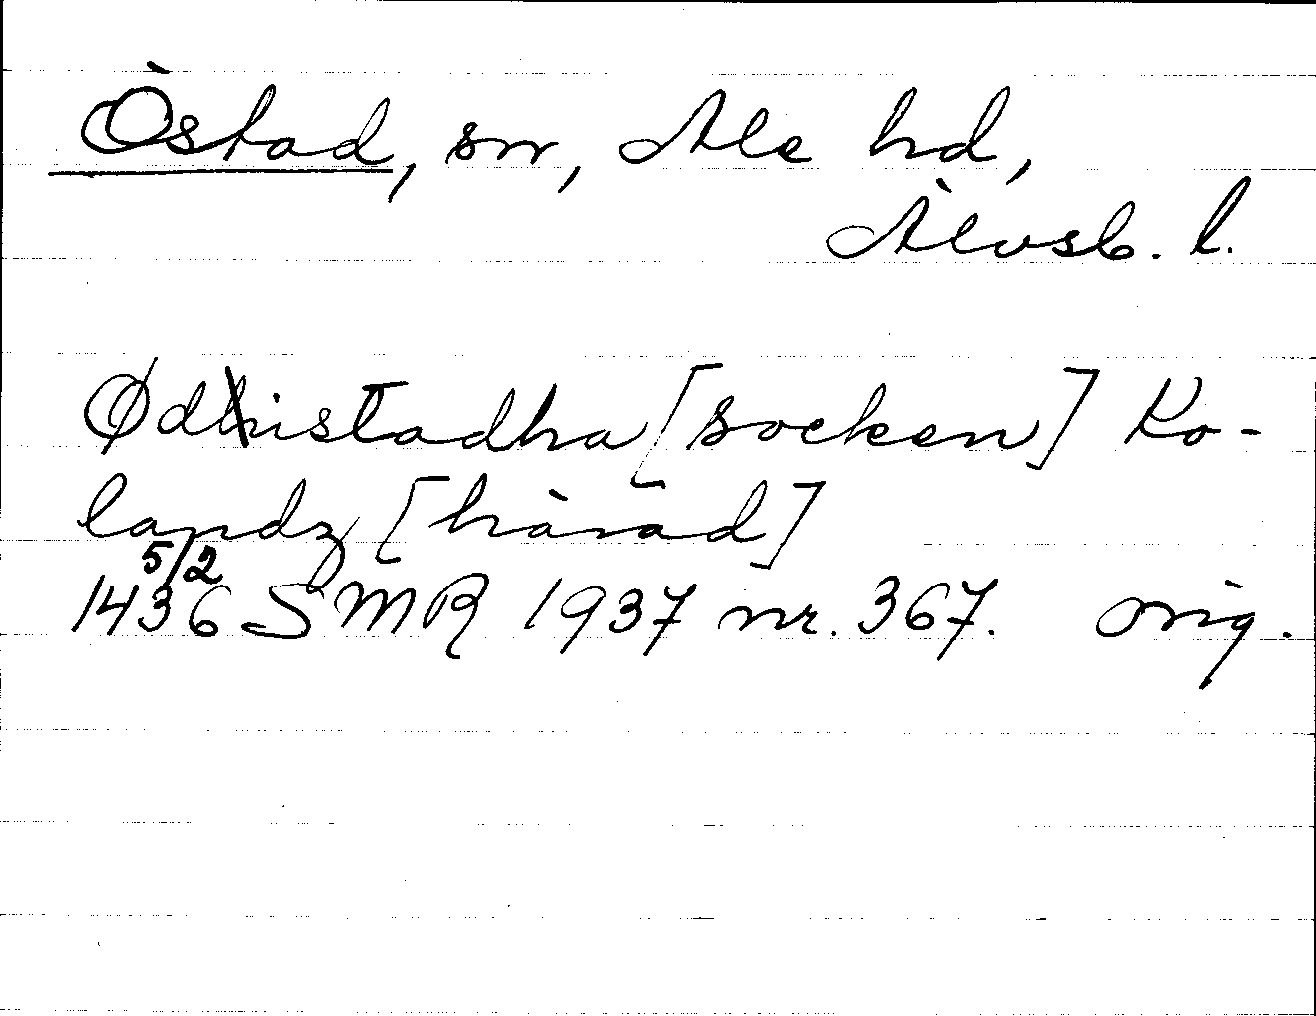 Östad, sn, Ale hd,
Älvsb. l.
Ødistadha [socken] Ko-
landz [härad]
5/2
1436 SMR 1937 nr. 367. orig.